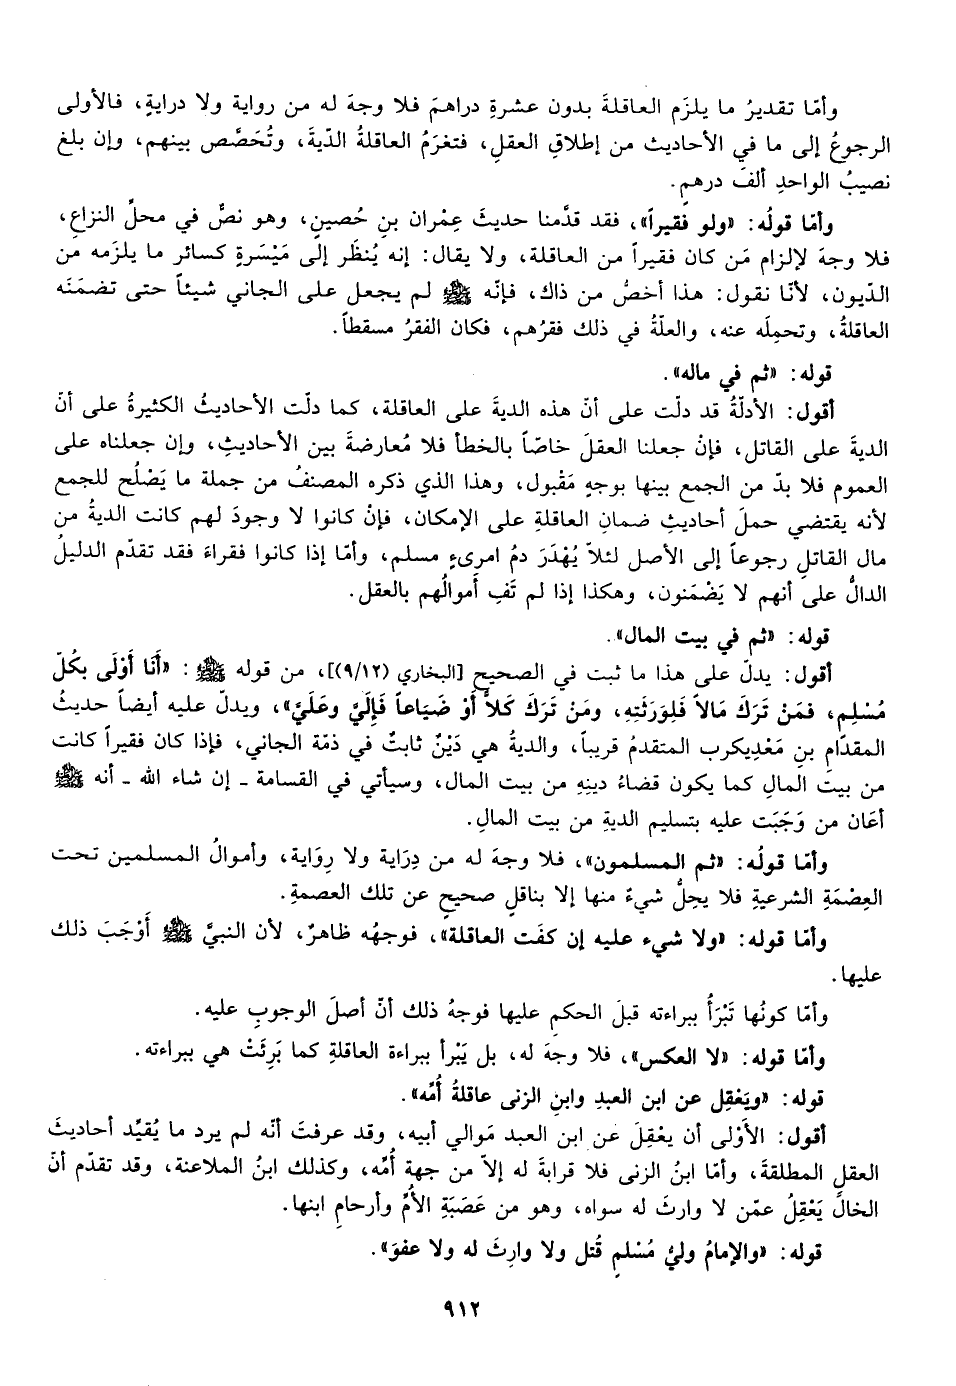 وأمّا تقديرُ ما يلزَم العاقلةَ بدون عشرةِ دراهمَ فلا وجهَ له من رواية ولا درايةٍ، فالأولى
الرجوعُ إلى ما في الأحاديث من إطلاقِ العقلِ، فتغرَمُ العاقلةُ الدّيةَ، وتُحَصَّص بينهم، وإن بلغ
نصيبُ الواحدِ ألفَ درهمٍ.
وأمّا قولُه: «ولو فقيراً»، فقد قدَّمنا حديثَ عِمْران بنِ حُصينٍ، وهو نصٌّ في محلِّ النزاعِ،
فلا وجهَ لإلزام مَن كان فقيراً من العاقلة، ولا يقال: إنه يُنظَر إلى مَيْسَرةٍ كسائر ما يلزَمه من
الدّيون، لأنّا نقول: هذا أخصُّ من ذاك، فإنّه ﷺ لم يجعل على الجاني شيئاً حتى تضمَنَه
العاقلةُ، وتحمِلَه عنه، والعلّةُ في ذلك فقرُهم، فكان الفقرُ مسقطاً.
قوله: «ثم في ماله».
أقول: الأدلّةُ قد دلّت على أنّ هذه الديةَ على العاقلة، كما دلّت الأحاديثُ الكثيرةُ على أنّ
الديةَ على القاتل، فإنْ جعلنا العقلَ خاصّاً بالخطأ فلا مُعارضةَ بين الأحاديثِ، وإن جعلناه على
العموم فلا بدّ من الجمع بينها بوجهٍ مَقْبول، وهذا الذي ذكره المصنفُ من جملة ما يَصْلُح للجمع
لأنه يقتضي حملَ أحاديثِ ضمانِ العاقلةِ على الإمكان، فإنْ كانوا لا وجودَ لهم كانت الديةُ من
مال القاتلِ رجوعاً إلى الأصل لئلاّ يُهْدَرَ دمُ امرىءٍ مسلم، وأمّا إذا كانوا فقراءَ فقد تقدّم الدليلُ
الدالُّ على أنهم لا يَضْمَنون، وهكذا إذا لم تَفِ أموالُهم بالعقل.
قوله: «ثم في بيت المال».
أقول: يدلّ على هذا ما ثبت في الصحيح [البخاري (٩/١٢)]، من قوله ﷺ: «أَنَا أَوْلَى بكُلّ
مُسْلِمٍ، فمَنْ تَرَكَ مَالاً فَلِوَرَثَتِهِ، ومَنْ تَرَكَ كَلاًّ أَوْ ضَيَاعاً فَإِلَيَّ وعَلَيَّ»، ويدلّ عليه أيضاً حديثُ
المقدّام بنِ مَعْدِيكرب المتقدمُ قريباً، والديةُ هي دَيْنٌ ثابتٌ في ذمّة الجاني، فإذا كان فقيراً كانت
من بيت المالِ كما يكون قضاءُ دينِهِ من بيت المال، وسيأتي في القسامة ـ إن شاء الله ـ أنه ﷺ
أعَان من وَجَبَت عليه بتسليم الديةِ من بيت المالِ.
وأمّا قولُه: «ثم المسلمون»، فلا وجهَ له من دِرَاية ولا رِوَاية، وأموالُ المسلمين تحت
العِصْمَةِ الشرعيةِ فلا يحِلُّ شيءٌ منها إلا بناقلٍ صحيحٍ عن تلك العصمةِ.
وأمّا قوله: «ولا شيء عليه إن كفَت العاقلة»، فوجهُه ظاهرٌ، لأن النبيَّ ﷺ أَوْجَبَ ذلك
عليها.
وأمّا كونُها تَبْرَأُ ببراءته قبلَ الحكمِ عليها فوجهُ ذلك أنّ أصلَ الوجوبِ عليه.
وأمّا قوله: «لا العكس»، فلا وجهَ له، بل يَبْرأ ببراءة العاقلةِ كما بَرِئَتْ هي ببراءته.
قوله: «ويَعْقِل عن ابن العبدِ وابنِ الزنى عاقلةُ أُمّه».
أقول: الأَوْلى أن يعْقِلَ عن ابن العبد مَوالي أبيه، وقد عرفتَ أنّه لم يرد ما يُقيِّد أحاديثَ
العقلِ المطلقةَ، وأمّا ابنُ الزنى فلا قرابةَ له إلاّ من جهة أُمِّه، وكذلك ابنُ الملاعنة، وقد تقدّم أنّ
الخالَ يَعْقِلُ عمّن لا وارثَ له سواه، وهو من عَصَبَةِ الأُمِّ وأرحامِ ابنها.
قوله: «والإمامُ وليُّ مُسْلمٍ قُتل ولا وارِثَ له ولا عفوَ».
٩١٢